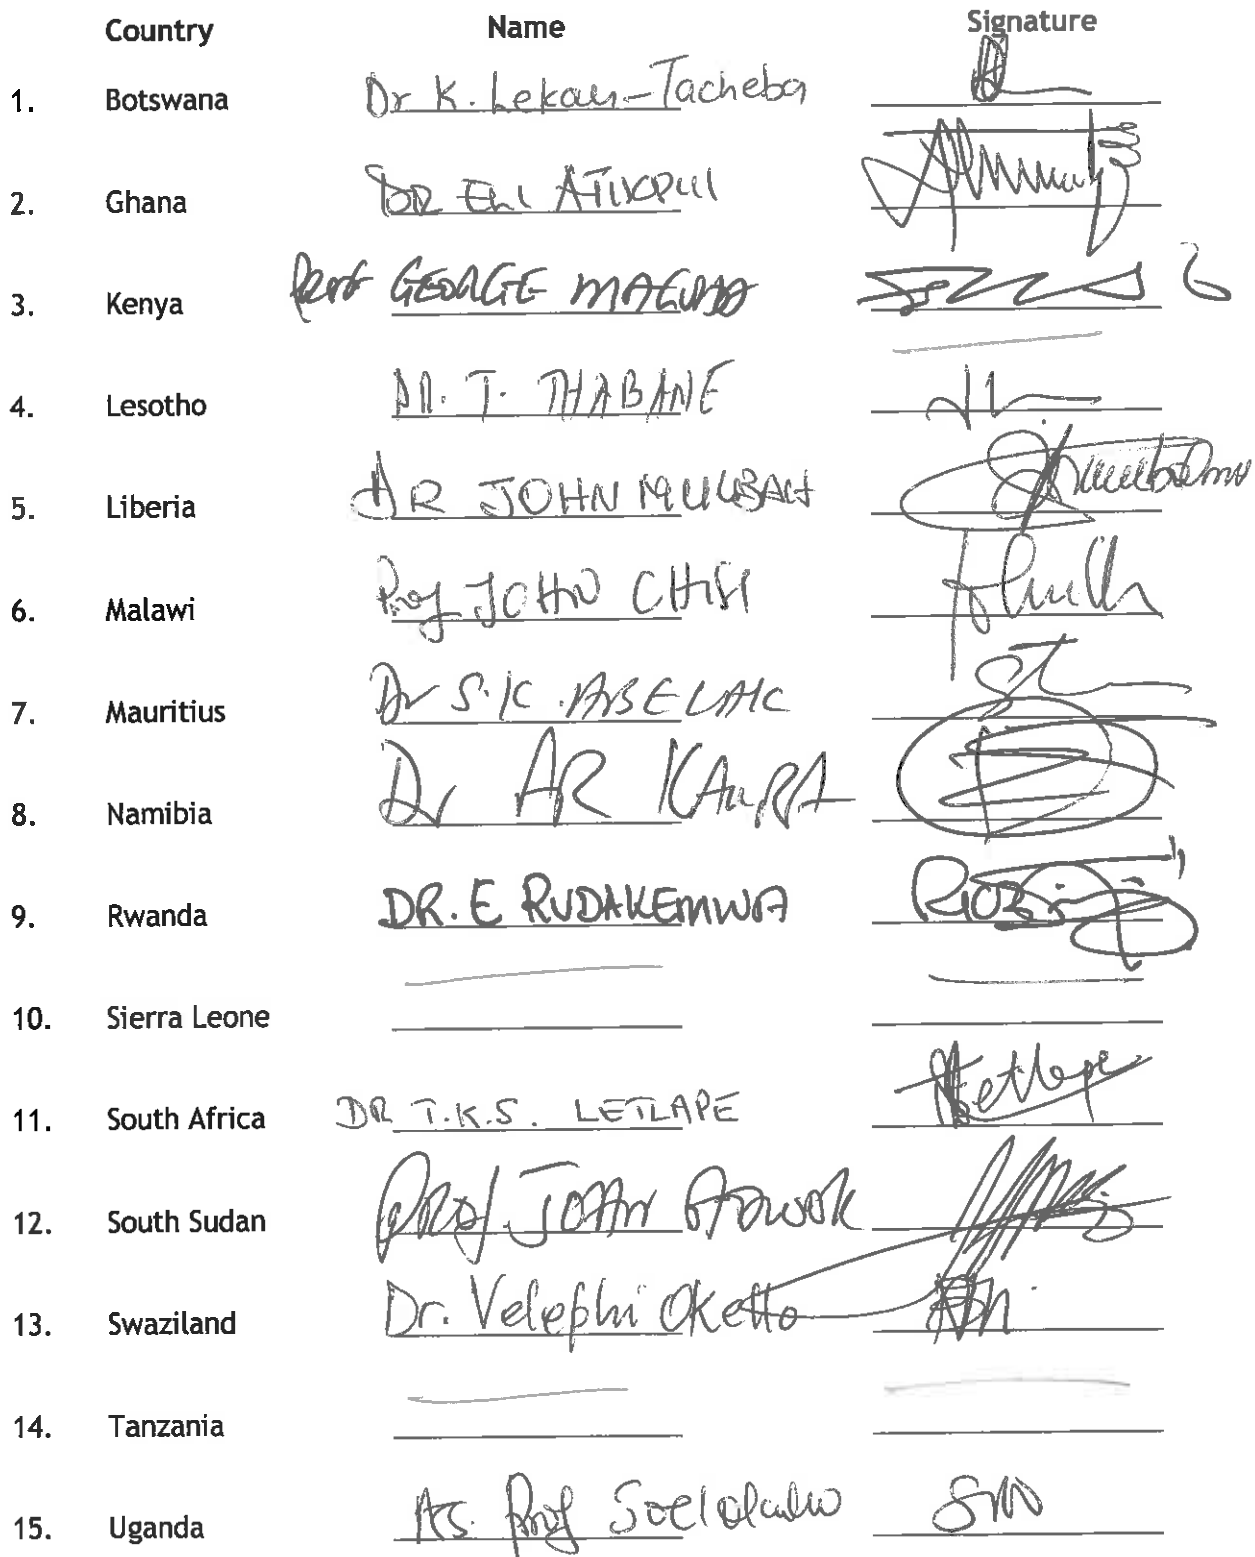 Country Name Signature
1. Botswana Dr K. Lekau-Tacheba
2. Ghana DR Eli ATIKPUI
3. Kenya Prof GEORGE MAGOHA
4. Lesotho DR. T. THABANE
5. Liberia DR JOHN MULBAH
6. Malawi Prof JOHN CHISI
7. Mauritius Dr S.K.
8. Namibia Dr AR KAURA
9. Rwanda DR. E RUDAKEMWA
10. Sierra Leone
11. South Africa DR T.K.S. LETLAPE Letlape
12. South Sudan PROF JOHN ADWOK
13. Swaziland Dr. Velephi Okello
14. Tanzania
15. Uganda As. Prof